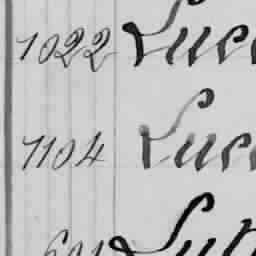 1022 Luc
1104 Luc
Lut